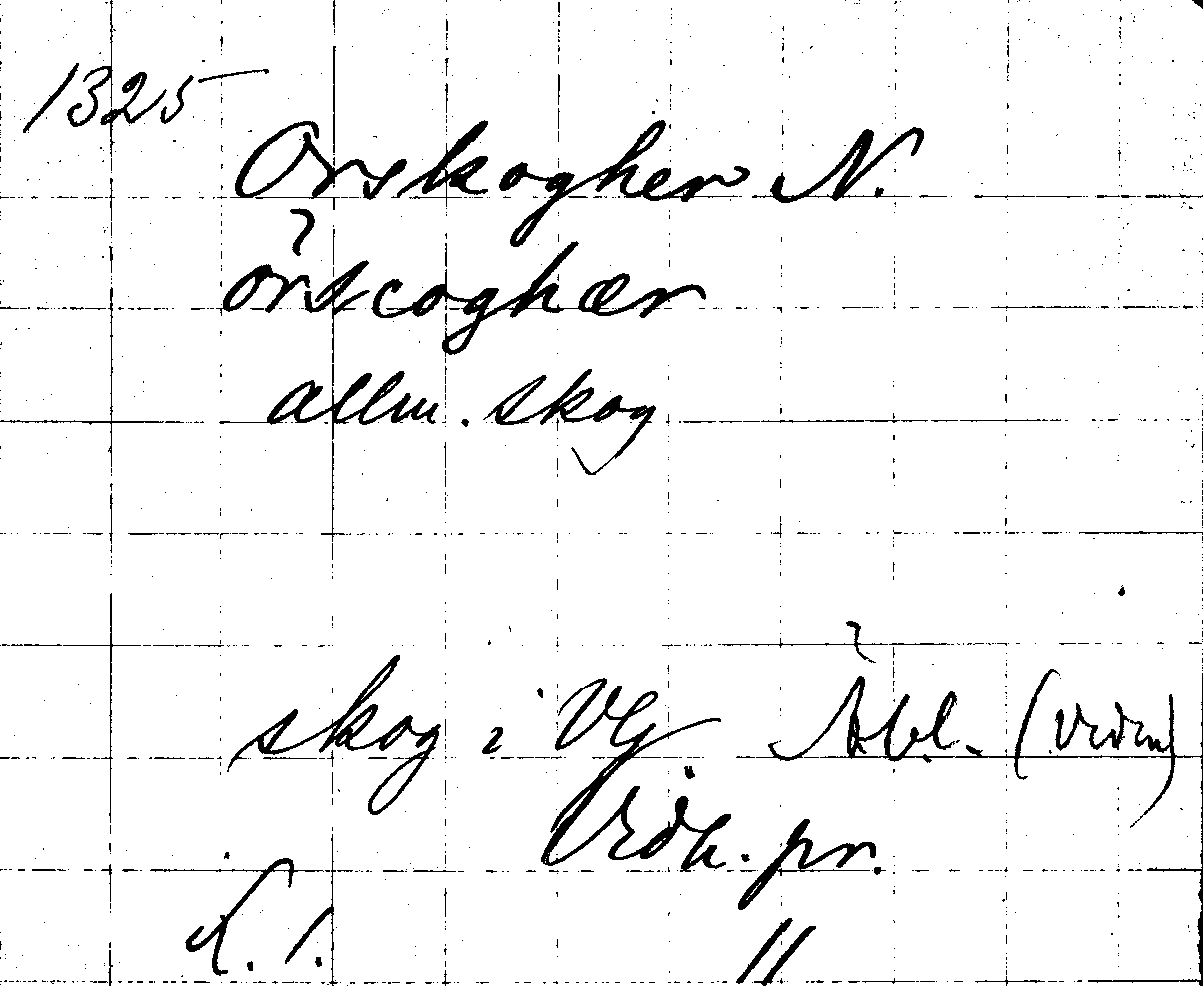 1325
Örskogher N.
örscoghær
allm. skog
skog i VG Äbl. (Vidm)
Vidm. pr.
l. 1. 11